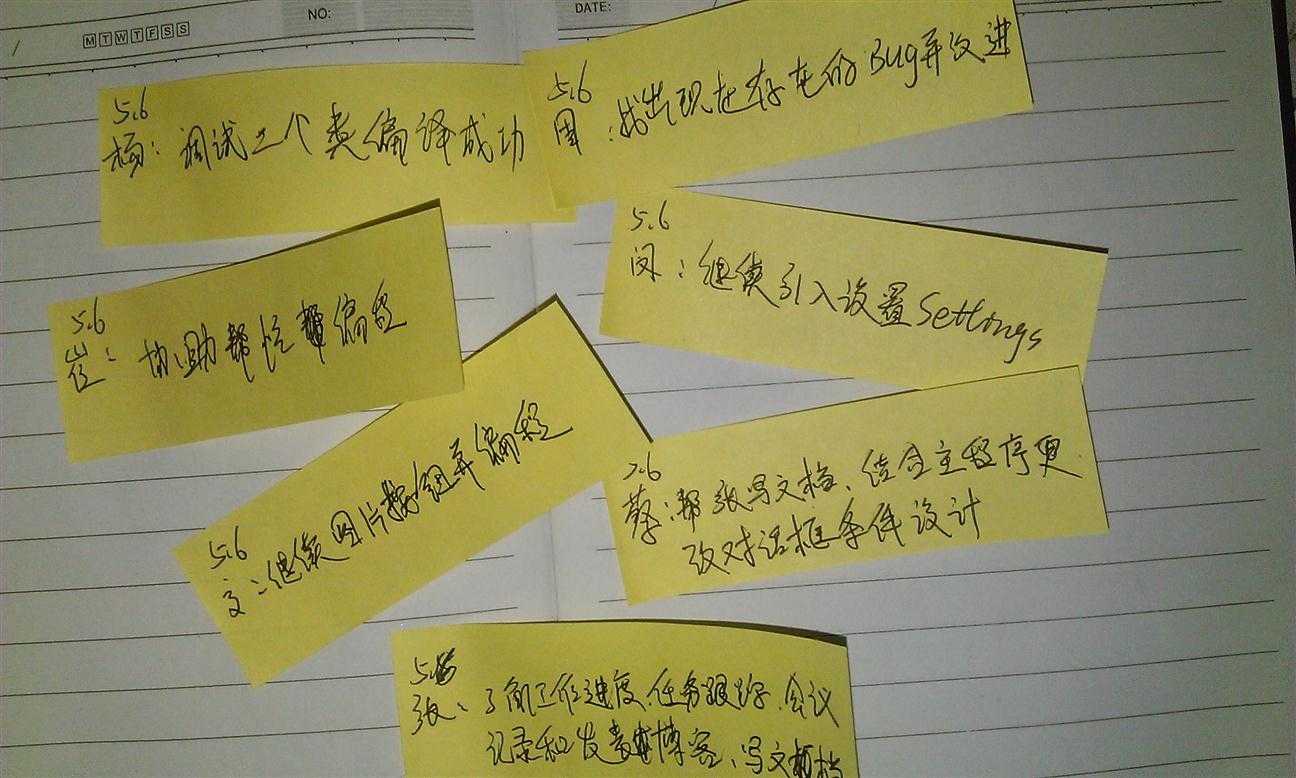 NO:
DATE:
M T W T F S S
5.6
杨：调试二个类编译成功
5.6
周：找出现在存在的Bug并改进
5.6
闵：继续引入设置Settings
5.6
崔：协助帮忙编程
5.6
文：继续图片按钮并编程
5.6
蔡：帮张写文档、结合主程序更
改对话框条件设计
5.6
张：了解工作进度、任务跟踪、会议
记录和发表博客、写文档